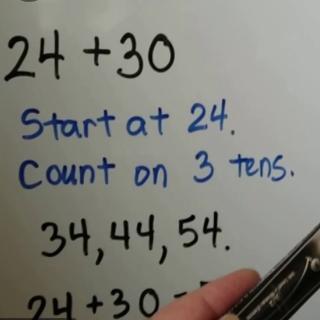 24 + 30
Start at 24.
Count on 3 tens.
34, 44, 54.
24 + 30 =